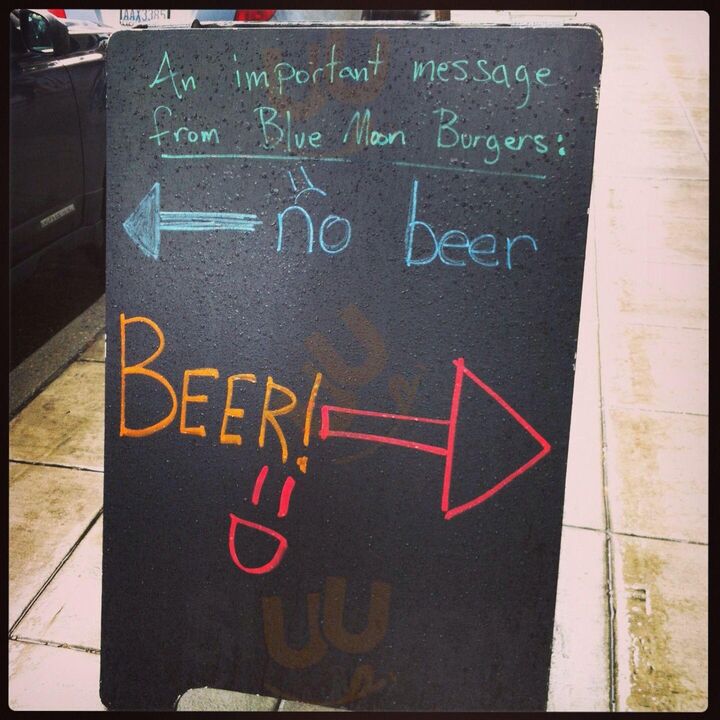 An important message
from Blue Moon Burgers:
no beer
BEER!